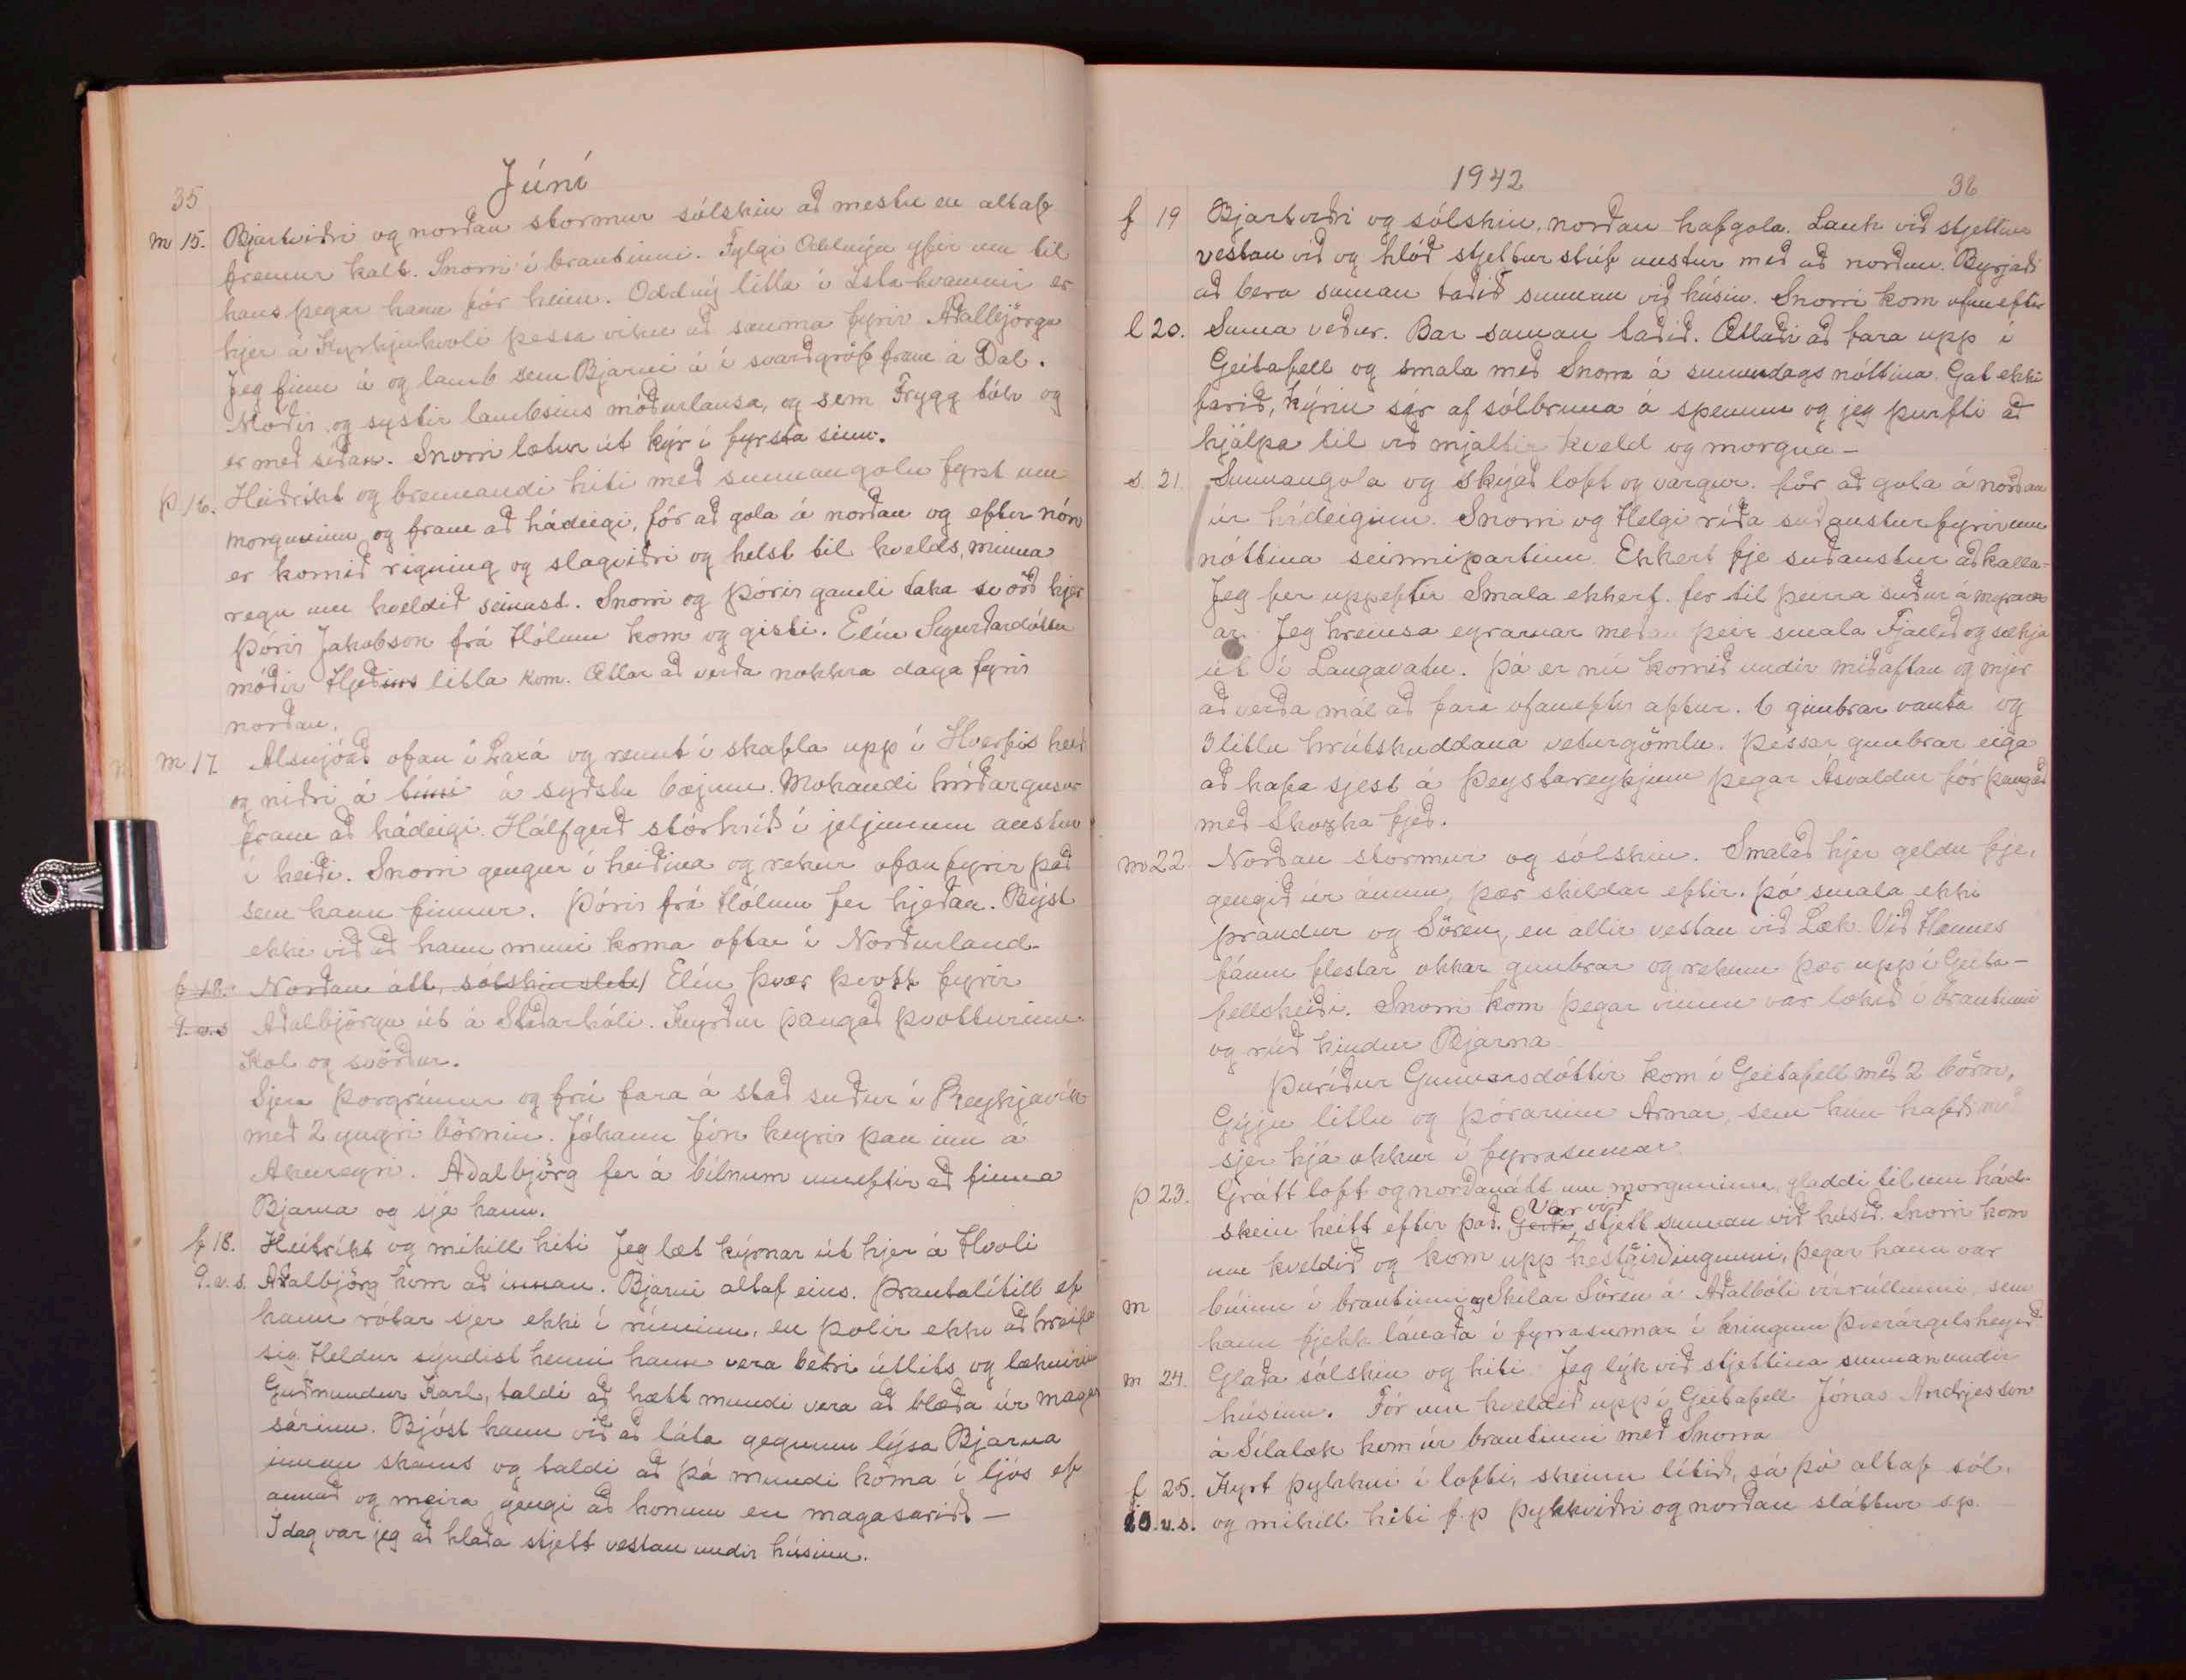 Júní
35
m 15. Bjartviðri og norðan stormur sólskin að mestu en altaf
fremur kalt. Snorri í brautinni. Fylgi Oddnýu yfir um til
hans þegar hann fór heim. Oddný litla í Ystahvammi er
hjer á Kyrkjuhvoli þessa viku að sauma fyrir Aðalbjörgu
Jeg finn á og lamb sem Bjarni á í svarðgröf fram á Dal.
Móðir og systir lambsins móðurlausa, og sem Frygg tólv og
er með síðan. Snorri lætur út kýr í fyrsta sinn.
þ 16. Heiðríkt og brennandi hiti með sunnangolu fyrst um
morguninn og fram að hádeigi, fór að gola á norðan og eftir nón
er komið rigning og slagviðri og helst til kvelds, minna
regn um kveldið seinast. Snorri og Þórir gamli taka svörð hjer
Þórir Jakobson frá Hólum kom og gisti. Elín Sigurðardóttir
móðir Hjeðins litla kom. Ætlar að verða nokkra daga fyrir
norðan.
m 17 Alsnjóað ofan í Laxá og rennt í skafla upp í Hverfis heið
og niðri á túni á syðstu bæjum. Mokandi hríðargusur
fram að hádeigi. Hálfgerð stórhríð í jeljunum austur
í heiði. Snorri gengur í heiðina og rekur ofan fyrir það
sem hann finnur. Þórir frá Hólum fer hjeðan. Býst
ekki við að hann muni koma oftar í Norðurland-
f 18. Norðan átt, sólskinslet/ Elín þvær þvott fyrir
9.v.s Aðalbjörgu út á Staðarhóli. Keyrður þangað þvotturinn.
Kol og svörður.
Sjera Þorgrímur og frú fara á stað suður í Reykjavík
með 2 yngri börnin. Jóhann Jón keyrir þau inn á
Akureyri. Aðalbjörg fer á bílnum inneftir að finna
Bjarna og sjá hann.
f 18. Heiðríkt og mikill hiti Jeg læt kýrnar út hjer á Hvoli
9.v.s. Aðalbjörg kom að innan. Bjarni altaf eins. Þrautalítill ef
hann rótar sjer ekki í rúminu, en þolir ekki að hreifa
sig. Heldur sýndist henni hann vera betri útlits og læknirinn
Guðmundur Karl, taldi að hætt mundi vera að blæða úr maga
sárinu. Bjóst hann við að láta gegnum lýsa Bjarna
innan skams og taldi að þá mundi koma í ljós ef
annað og meira gengi að honum en magasárið —
Í dag var jeg að hlaða stjett vestan undir húsinu.
1942
36
f 19 Bjartviðri og sólskin, norðan hafgola. Lauk við stjettina
vestan við og hlóð stjettarstúf austur með að norðan. Byrjaði
að bera saman taðið sunnan við húsin. Snorri kom ofaneftir
l 20. Sama veður. Bar saman taðið. Ætlaði að fara upp í
Geitafell og smala með Snorra á sunnudags nóttina. Gat ekki
farið, kýrin sár af sólbruna á spenum og jeg þurfti að
hjálpa til við mjaltir kveld og morgna —
s. 21. Sunnangola og skýjað loft og vargur. fór að gola á norðan
úr hádeiginu. Snorri og Helgi ríða suðaustur fyrir um
nóttina seinnipartinn. Ekkert fje suðaustur að kalla-
Jeg fer uppeftir Smala ekkert. fer til þeirra suður á mýrar
ar. Jeg hreinsa eyrarnar meðan þeir smala Fjallið og sækja
út í Langavatn. Þá er nú komið undir miðaftan og mjer
að verða mál að fara ofaneftir aftur. 6 gimbrar vanta og
3 litlu hrútskuddana veturgömlu. Þessar gimbrar eiga
að hafa sjest á Þeystareykjum þegar Ásvaldur fór þangað
með Skozka fjeð.
m 22. Norðan stormur og sólskin. Smalað hjer geldu fje.
gengið úr ánum, þær skildar eftir. Þó smala ekki
Þrándur og Sören, en allir vestan við Læk. Við Hannes
fáum flestar okkar gimbrar og rekum þær upp í Geita-
fellsheiði. Snorri kom þegar vinnu var lokið í brautinni
og rúði kindur Bjarna
Þuríður Gunnarsdóttir kom í Geitafell með 2 börn,
Gýju litlu og Þórarinn Arnar, sem hún hafði með
sjer hjá okkur í fyrrasumar
þ 23. Grátt loft og norðanátt um morguninn, gladdi til um hád.
skein heitt eftir það. Gerði Var við stjett sunnan við húsið. Snorri kom
um kveldið og kom upp hestgirðingunni, þegar hann var
m búinn í brautinni og skilar Sören á Aðalbóli vírrúllunni sem
hann fjekk lánaða í fyrrasumar í kringum Þverárgilsheyið
m 24. Glaða sólskin og hiti. Jeg lýk við stjettina sunnanundir
húsinu. Fór um kveldið upp í Geitafell Jónas Andrjesson
á Sílalæk kom úr brautinni með Snorra
f 25. Kyrt þykkni í lofti, skein lítið, sá þó altaf sól.
10.v.s. og mikill hiti f.p þykkviðri og norðan sláttur s.p.